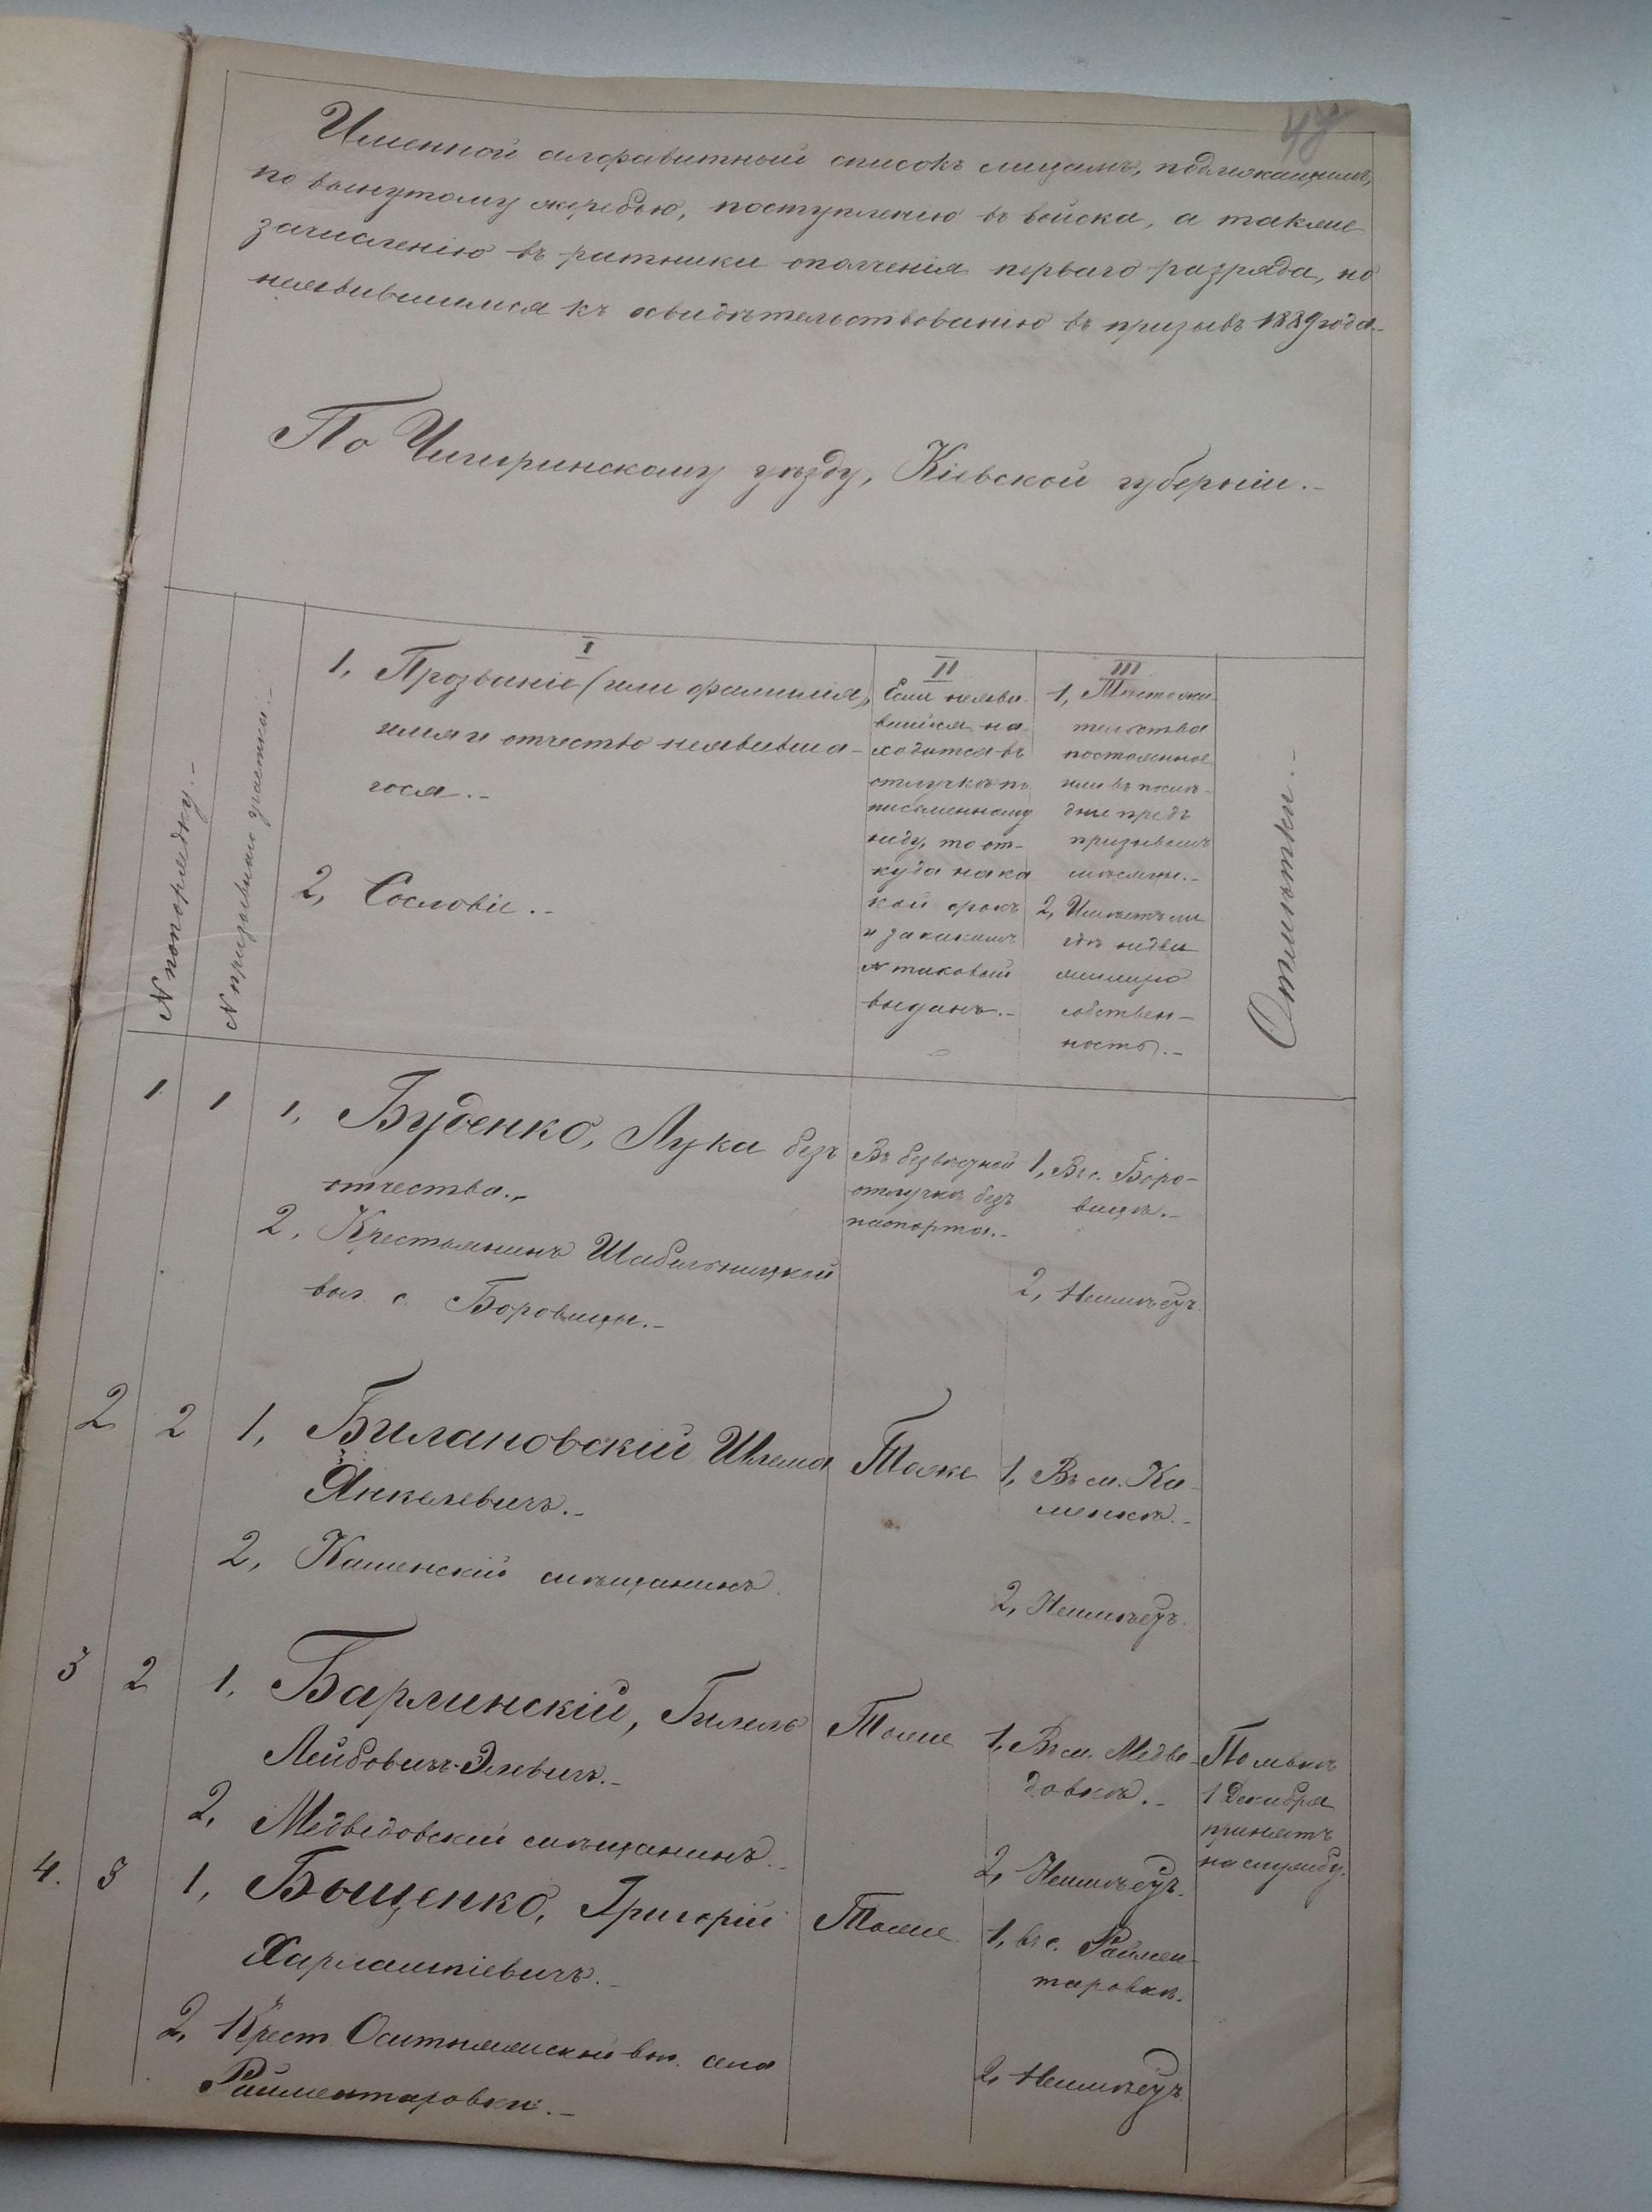 Именной алфавитный списокъ лицамъ, подлежащимъ,
по вынутому жеребью, поступленію въ войска, а также
зачисленію въ ратники ополченія перваго разряда, но
неявившимся къ освидѣтельствованію въ призывъ 1889 года.-
По Чигиринскому уѣзду, Кіевской губерніи.-
N по порядку.-
N призывнаго участка.-
I
1, Прозваніе (или фамилія),
имя и отчество неявивша-
гося.-
2, Сословіе.-
II
Если неяви-
вшійся на-
ходится въ
отлучкѣ по
письменному
виду, то от-
куда на ка
кой срокъ
и за какимъ
N таковый
выданъ.-
III
1, Мѣсто жи-
тельства
постоянное
или въ послѣ-
дніе предъ
призывомъ
мѣсяцы.-
2, Имѣетъ ли
гдѣ недви
жимую
собствен-
ность.-
Отмѣтки.-
1 1 1, Буденко, Лука безъ
отчества.-
2, Крестьянинъ Шабельницкой
вол. с. Боровицы.-
Въ безвѣстной
отлучкѣ безъ
паспорта.-
1, Въ с. Боро-
вицѣ.-
2, Неимѣетъ.
2 2 1, Билановскій
Янкелевичъ.-
2, Каменскій мѣщанинъ.
Тоже
1, Въ м. Ка-
менкѣ.-
2, Неимѣетъ.
3 2 1, Барлинскій, Гилель
Лейбовичъ-Элевичъ.-
2, Медведовскій мѣщанинъ.-
Тоже
1, Въ м. Медве-
довкѣ.-
2, Неимѣетъ.
1 Декабря
принятъ
на службу.
4. 3 1, Бощенко, Григорій
Харлампіевичъ.-
2, Крест Оситняжской вол. села
Райментаровки.-
Тоже
1, въ с. Раймен-
таровкѣ.
2, Неимѣетъ.